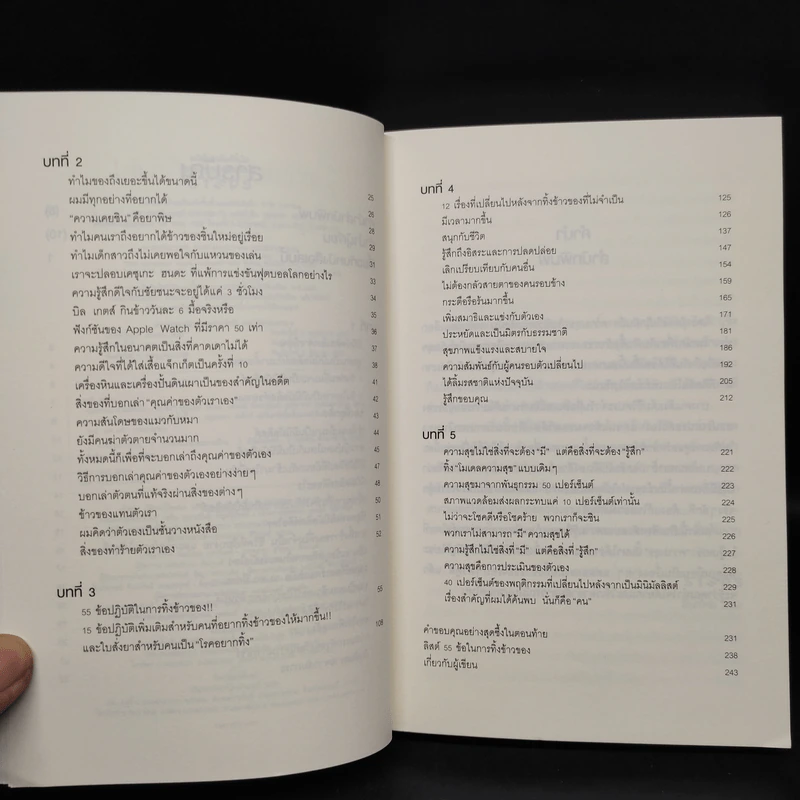 บทที่ 2
ทำไมของถึงเยอะขึ้นได้ขนาดนี้
ผมมีทุกอย่างที่อยากได้ 25
"ความเคยชิน" คือยาพิษ 26
ทำไมคนเราถึงอยากได้ข้าวของชิ้นใหม่อยู่เรื่อย 28
ทำไมเด็กสาวถึงไม่เคยพอใจกับแหวนของเล่น 29
เราจะปลอบเคซุเกะ ฮนดะ ที่แพ้การแข่งขันฟุตบอลโลกอย่างไร 31
ความรู้สึกดีใจกับชัยชนะจะอยู่ได้แค่ 3 ชั่วโมง 33
บิล เกตส์ กินข้าววันละ 6 มื้อจริงหรือ 34
ฟังก์ชันของ Apple Watch ที่มีราคา 50 เท่า 35
ความรู้สึกในอนาคตเป็นสิ่งที่คาดเดาไม่ได้ 36
ความดีใจที่ได้ใส่เสื้อแจ็กเก็ตเป็นครั้งที่ 10 37
เครื่องหินและเครื่องปั้นดินเผาเป็นของสำคัญในอดีต 38
สิ่งของที่บอกเล่า "คุณค่าของตัวเราเอง" 41
ความสันโดษของแมวกับหมา 42
ยังมีคนฆ่าตัวตายจำนวนมาก 43
ทั้งหมดนี้ก็เพื่อที่จะบอกเล่าถึงคุณค่าของตัวเอง 44
วิธีการบอกเล่าคุณค่าของตัวเองอย่างง่ายๆ 45
บอกเล่าตัวตนที่แท้จริงผ่านสิ่งของต่างๆ 46
ข้าวของแทนตัวเรา 47
ผมคิดว่าตัวเองเป็นชั้นวางหนังสือ 51
สิ่งของทำร้ายตัวเราเอง 52
บทที่ 3
55 ข้อปฏิบัติในการทิ้งข้าวของ!! 55
15 ข้อปฏิบัติเพิ่มเติมสำหรับคนที่อยากทิ้งข้าวของให้มากขึ้น!!
และใบสั่งยาสำหรับคนเป็น "โรคอยากทิ้ง" 108
บทที่ 4
12 เรื่องที่เปลี่ยนไปหลังจากทิ้งข้าวของที่ไม่จำเป็น 125
มีเวลามากขึ้น 126
สนุกกับชีวิต 137
รู้สึกถึงอิสระและการปลดปล่อย 147
เลิกเปรียบเทียบกับคนอื่น 154
ไม่ต้องกลัวสายตาของคนรอบข้าง 159
กระตือรือร้นมากขึ้น 165
เพิ่มสมาธิและแข่งกับตัวเอง 171
ประหยัดและเป็นมิตรกับธรรมชาติ 181
สุขภาพแข็งแรงและสบายใจ 186
ความสัมพันธ์กับผู้คนรอบตัวเปลี่ยนไป 192
ได้ลิ้มรสชาติแห่งปัจจุบัน 205
รู้สึกขอบคุณ 212
บทที่ 5
ความสุขไม่ใช่สิ่งที่จะต้อง "มี" แต่คือสิ่งที่จะต้อง "รู้สึก" 221
ทิ้ง "โมเดลความสุข" แบบเดิมๆ 222
ความสุขมาจากพันธุกรรม 50 เปอร์เซ็นต์ 223
สภาพแวดล้อมส่งผลกระทบแค่ 10 เปอร์เซ็นต์เท่านั้น 224
ไม่ว่าจะโชคดีหรือโชคร้าย พวกเราก็จะชิน 225
พวกเราไม่สามารถ "มี" ความสุขได้ 226
ความรู้สึกไม่ใช่สิ่งที่ "มี" แต่คือสิ่งที่ "รู้สึก" 227
ความสุขคือการประเมินของตัวเอง 228
40 เปอร์เซ็นต์ของพฤติกรรมที่เปลี่ยนไปหลังจากเป็นมินิมัลลิสต์ 229
เรื่องสำคัญที่ผมได้ค้นพบ นั่นก็คือ "คน" 231
คำขอบคุณอย่างสุดซึ้งในตอนท้าย 231
ลิสต์ 55 ข้อในการทิ้งข้าวของ 238
เกี่ยวกับผู้เขียน 243